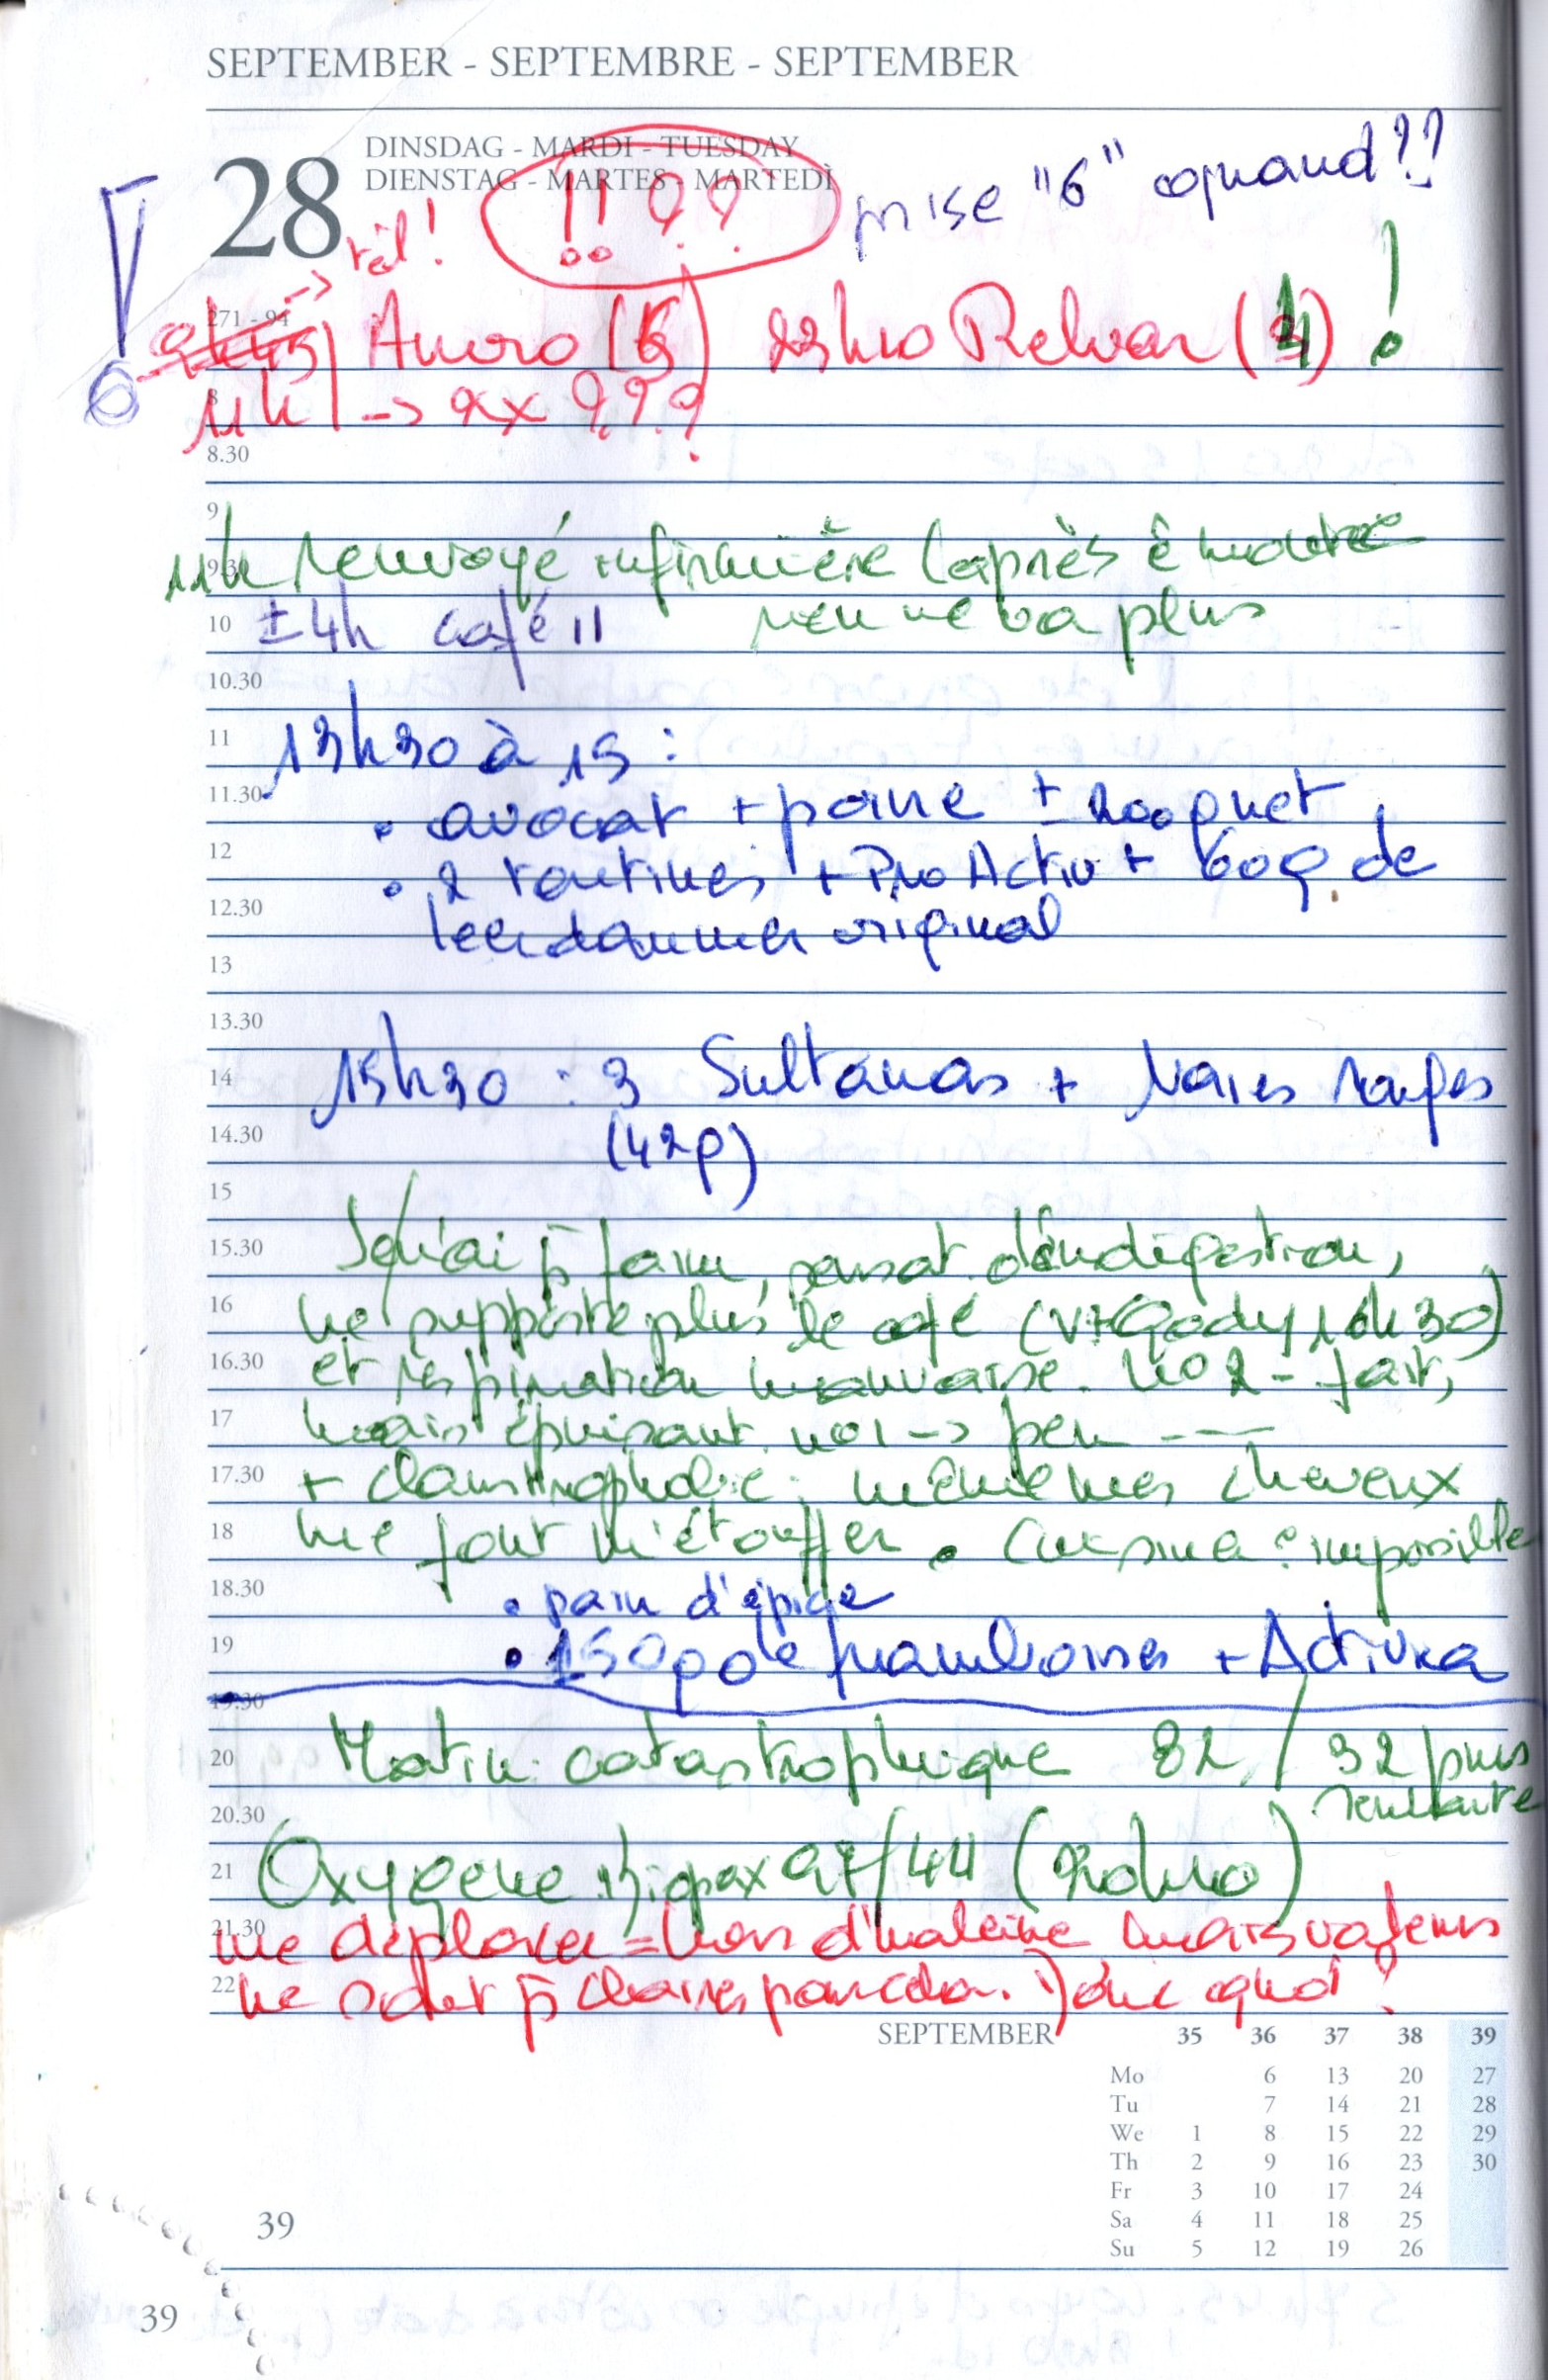 SEPTEMBER - SEPTEMBRE - SEPTEMBER
DINSDAG - MARDI - TUESDAY
DIENSTAG - MARTES - MARTEDÌ
28
!! ??
prise "6" quand??
→ tél!
271 - 94
9h45 Auoro (6) 23h10 Relvar (4) !
11h → ax ???
8
8.30
9
11h renvoyé infirmière (après
9.30
rien ne va plus
10 ± 4h café II
10.30
11 13h30 à 15 :
11.30 • avocat + poire ± 200g net
12 • 2 tartines + Pro Activ + 60g de
12.30 leerdammer original
13
13.30
14 15h30 : 3 Sultanas + Noires rouges
14.30 (42g)
15
15.30 faim, d'indigestion,
16 ne supporte plus le café (V+Gody 16h30)
16.30 et respiration mauvaise. no 2 - fait,
17 mais épuisant. no 1 → peu ---
17.30 + claustrophobie : même mes cheveux
18 me font m'étouffer. Cuisine : impossible
18.30 • pain d'épice
19 • 150g de framboises + Activia
19.30
20 Matin : catastrophique 82 / 32 puis
remonte
20.30
21 Oxygène 97/44 (20h10)
21.30 me déplacer = hors d'haleine mais
22 Donc quoi ?
SEPTEMBER 35 36 37 38 39
Mo 6 13 20 27
Tu 7 14 21 28
We 1 8 15 22 29
Th 2 9 16 23 30
Fr 3 10 17 24
Sa 4 11 18 25
Su 5 12 19 26
39
39